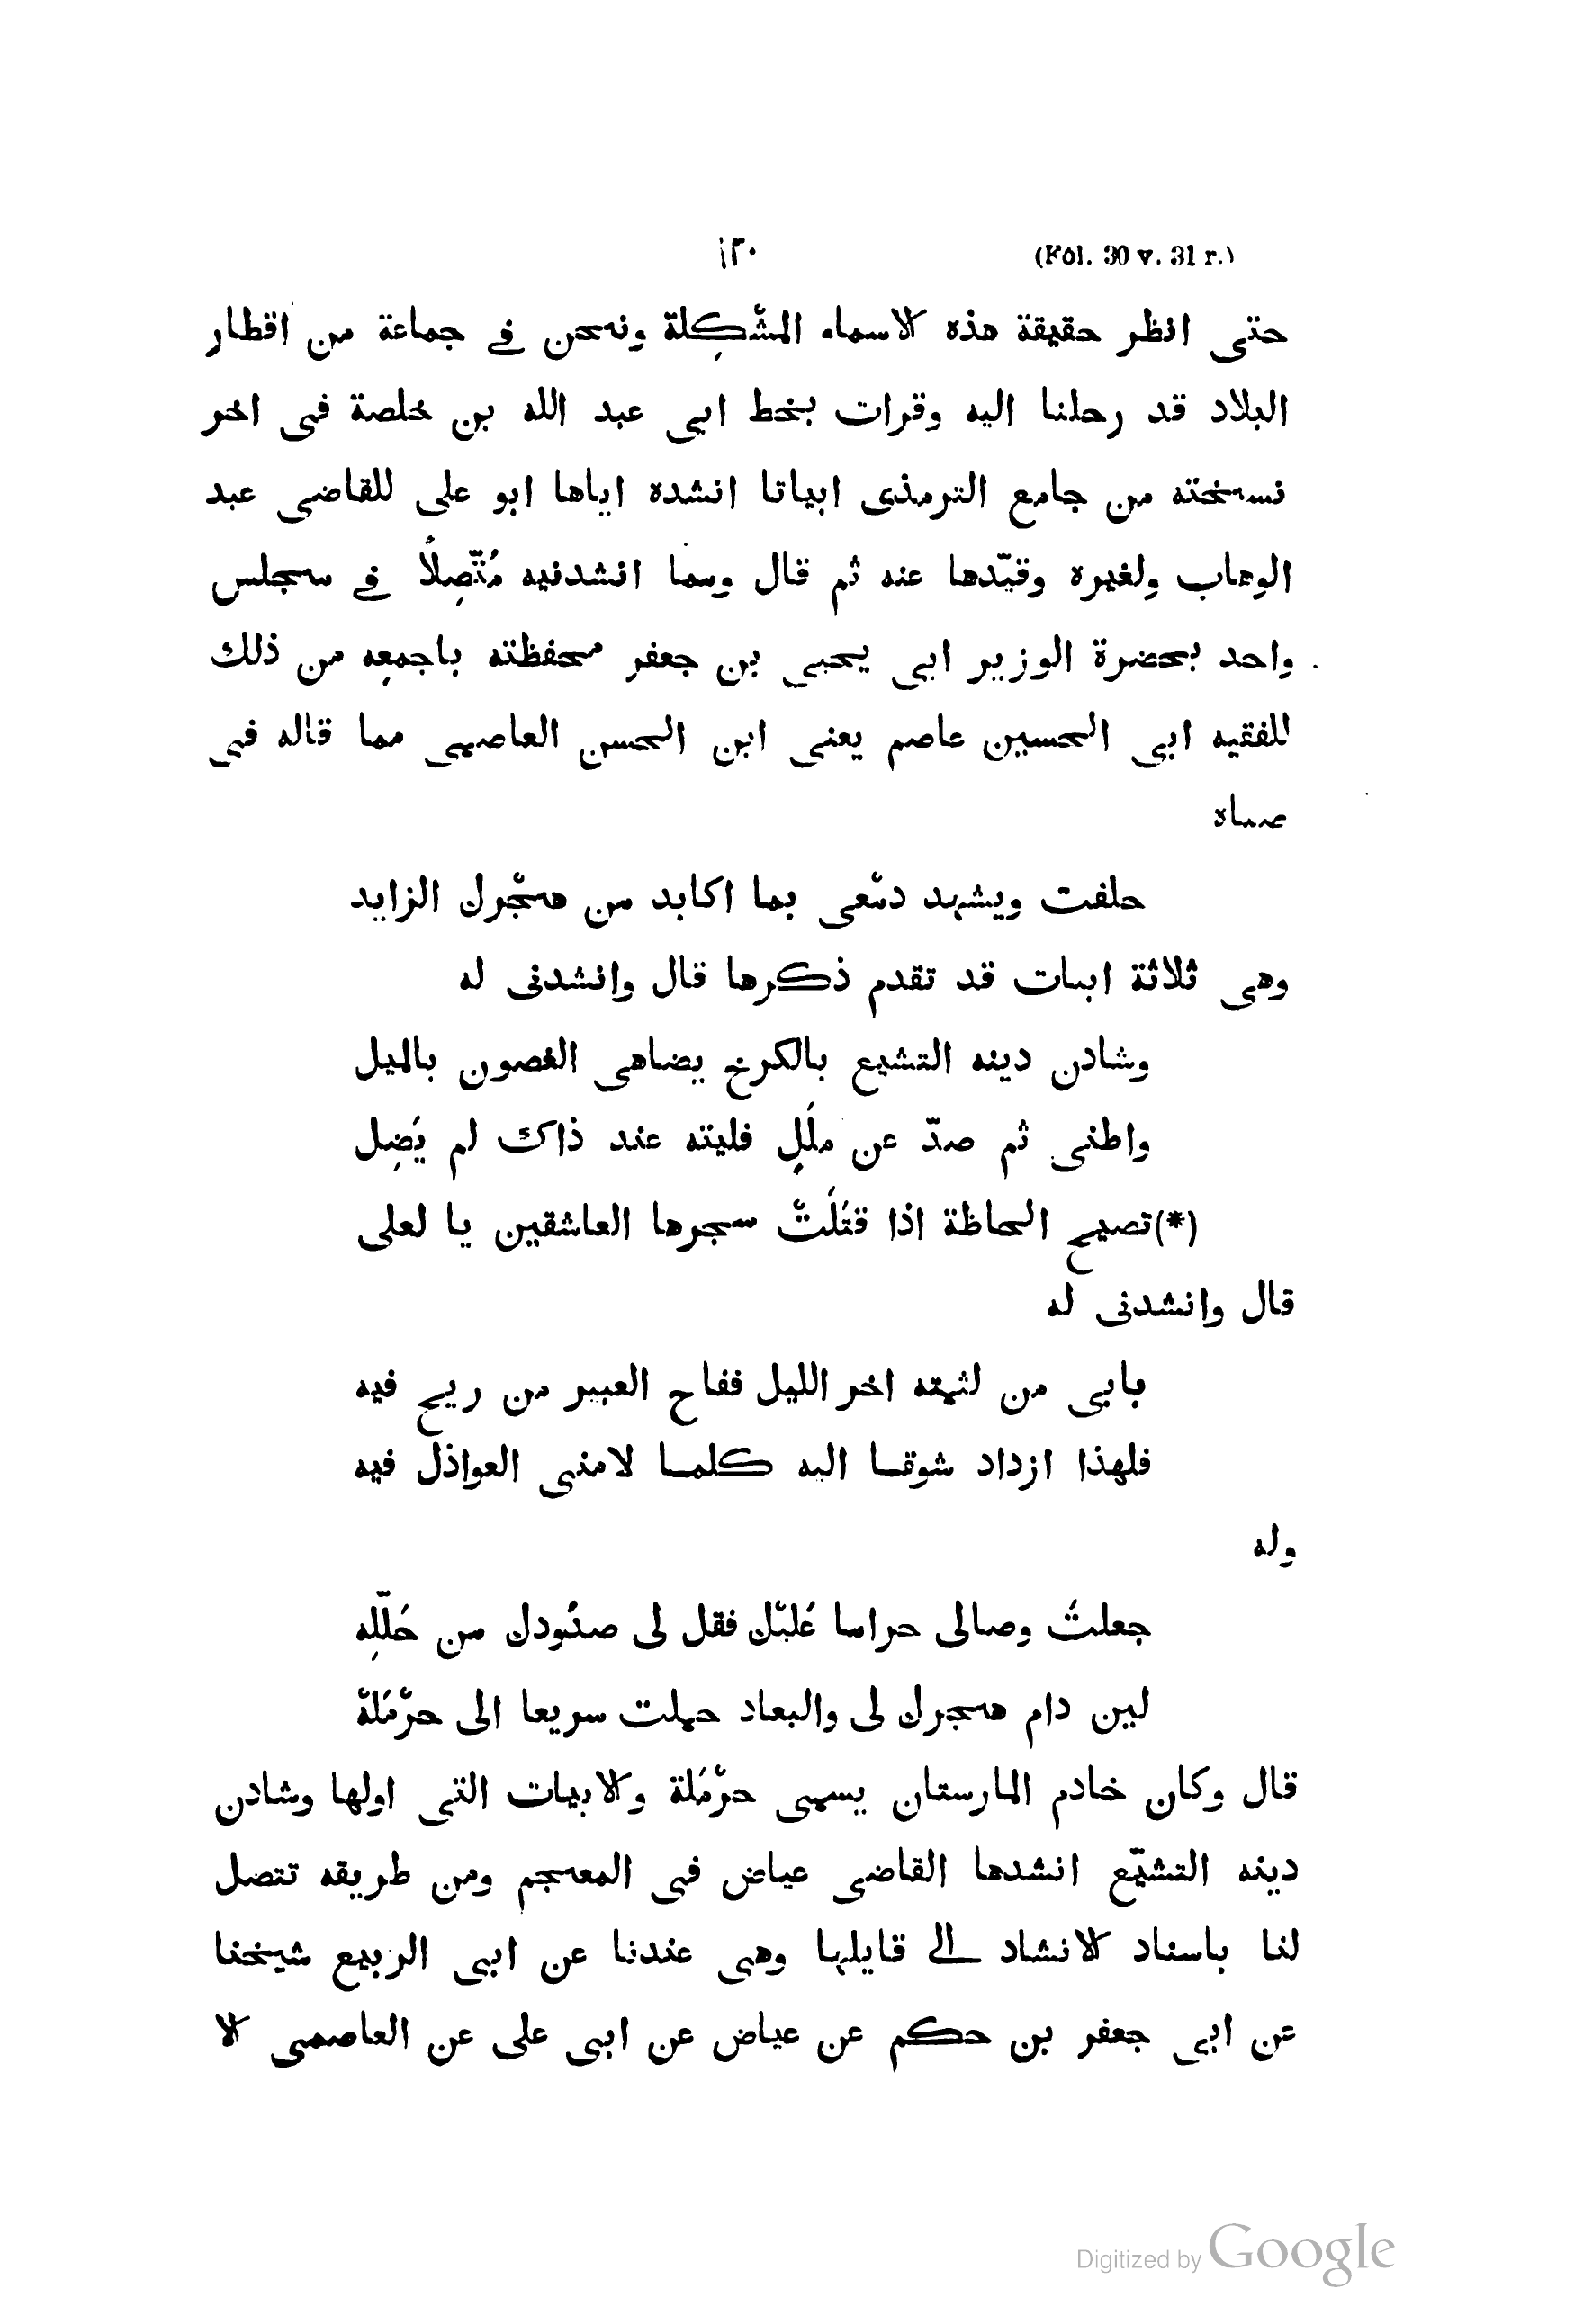 (Fol. 30 v. 31 r.) ١٣٠
حتى انظر حقيقة هذه الاسماء المشْكِلة ونحن في جماعة من اقطار
البلاد قد رحلنا اليه وقرات بخط ابي عبد الله بن خلصة في اخر
نسخته من جامع الترمذى ابياتا انشده اياها ابو على للقاضى عبد
الوهاب ولغيره وقيّدها عنه ثم قال ومما انشدنيه مُتّصِلًا في مجلس
واحد بحضرة الوزير ابى يحيى بن جعفر محفظته باجمعِه من ذلك
للفقيه ابى الحسين عاصم يعنى ابن الحسن العاصمى مما قاله فى
صباه
حلفت ويشهد دمْعى بما اكابد من هجْرك الزايد
وهى ثلاثة ابيات قد تقدم ذكرها قال وانشدنى له
وشادن دينه التشيع بالكرخ يضاهى الغصون بالميل
واطنى ثم صدّ عن ملَلٍ فليته عند ذاك لم يَصِل
(*)تصيح الحاظة اذا قتَلَتْ سجرها العاشقين يا لعلى
قال وانشدنى له
بابى من لثمته اخر الليل ففاح العبير من ريح فيه
فلهذا ازداد شوقا اليه كلما لامنى العواذل فيه
وله
جعلتُ وصالى حراما عُلبْك فقل لى صدُودك من حَلّلِه
لين دام هجرك لى والبعاد حملت سريعا الى حرْمَلهْ
قال وكان خادم المارستان يسمى حرْمَلة والابيات التى اولها وشادن
دينه التشيّع انشدها القاضى عياض فى المعجم ومن طريقه تتصل
لنا باسناد الانشاد الى قايلها وهى عندنا عن ابى الربيع شيخنا
عن ابى جعفر بن حكم عن عياض عن ابى على عن العاصمى الا
Digitized by Google